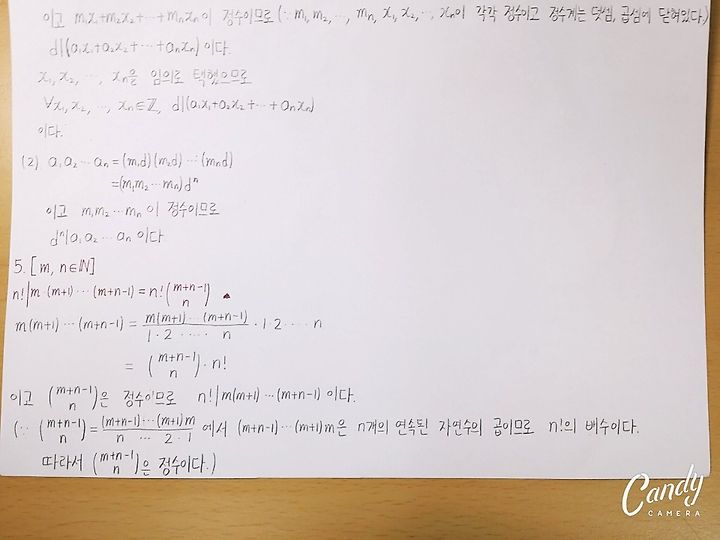 이고 m₁x₁+m₂x₂+⋯+mₙxₙ이 정수이므로 (∵ m₁, m₂, ⋯, mₙ, x₁, x₂, ⋯, xₙ이 각각 정수이고 정수계는 덧셈, 곱셈에 닫혀있다.)
d|(a₁x₁+a₂x₂+⋯+aₙxₙ) 이다.
x₁, x₂, ⋯, xₙ을 임의로 택했으므로
∀x₁, x₂, ⋯, xₙ∈ℤ, d|(a₁x₁+a₂x₂+⋯+aₙxₙ)
이다.
(2) a₁a₂⋯aₙ=(m₁d)(m₂d)⋯(mₙd)
=(m₁m₂⋯mₙ)dⁿ
이고 m₁m₂⋯mₙ이 정수이므로
dⁿ|a₁a₂⋯aₙ 이다.
5. [m, n∈ℕ]
n!|m·(m+1)⋯(m+n-1)=n!(m+n-1 n).
m(m+1)⋯(m+n-1) = m(m+1)⋯(m+n-1) / 1·2⋯⋯n ·1·2⋯⋯n
= (m+n-1 n)·n!
이고 (m+n-1 n)은 정수이므로 n!|m(m+1)⋯(m+n-1) 이다.
(∵ (m+n-1 n)= (m+n-1)⋯(m+1)m / n ⋯ 2·1 에서 (m+n-1)⋯(m+1)m은 n개의 연속된 자연수의 곱이므로 n!의 배수이다.
따라서 (m+n-1 n)은 정수이다.)
Candy
CAMERA